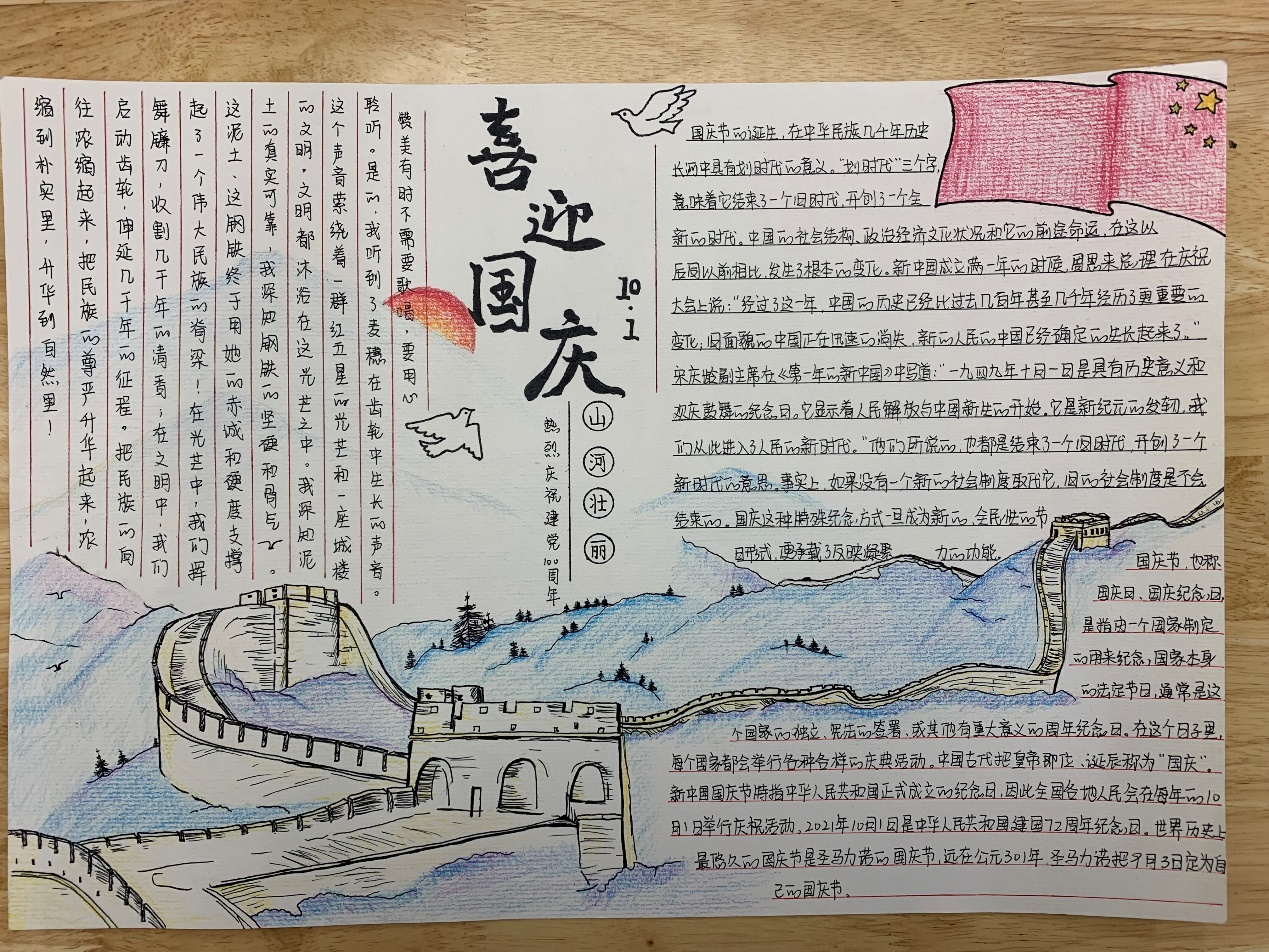 喜迎国庆
10·1
山河壮丽
热烈庆祝建党100周年
赞美有时不需要歌唱，要用心
聆听。是的，我听到了麦穗在齿轮中生长的声音。
这个声音萦绕着一群红五星的光芒和一座城楼
的文明。文明都沐浴在这光芒之中。我深知泥
土的真实可靠，我深知钢铁的坚硬和骨气。
这泥土、这钢铁终于用她的赤城和硬度支撑
起了一个伟大民族的脊梁！在光芒中，我们挥
舞镰刀，收割几千年的清香；在文明中，我们
启动齿轮，伸延几千年的征程。把民族的向
往浓缩起来，把民族的尊严升华起来，浓
缩到朴实里，升华到自然里！
国庆节的诞生，在中华民族几千年历史
长河中具有划时代的意义。“划时代”三个字，
意味着它结束了一个旧时代，开创了一个全
新的时代。中国的社会结构、政治经济文化状况和它的前途命运，在这以
后同以前相比，发生了根本的变化。新中国成立满一年的时候，周恩来总理在庆祝
大会上说：“经过了这一年，中国的历史已经比过去几百年甚至几千年经历了更重要的
变化，旧面貌的中国正在迅速的消失，新的人民的中国已经确定的生长起来了。”
宋庆龄副主席在《第一年的新中国》中写道：“一九四九年十月一日是具有历史意义和
欢庆鼓舞的纪念日。它显示着人民解放与中国新生的开始。它是新纪元的发轫，我
们从此进入了人民的新时代。”他们所说的，也都是结束了一个旧时代，开创了一个
新时代的意思。事实上，如果没有一个新的社会制度取代它，旧的社会制度是不会
结束的。国庆这种特殊纪念方式一旦成为新的、全民性的节
日形式，便承载了反映凝聚力的功能。
国庆节，也称
国庆日、国庆纪念日，
是指由一个国家制定
的用来纪念国家本身
的法定节日，通常是这
个国家的独立、宪法的签署，或其他有重大意义的周年纪念日。在这个日子里，
每个国家都会举行各种各样的庆典活动。中国古代把皇帝即位、诞辰称为“国庆”。
新中国国庆节特指中华人民共和国正式成立的纪念日，因此全国各地人民会在每年的10
月1日举行庆祝活动，2021年10月1日是中华人民共和国建国72周年纪念日。世界历史上
最悠久的国庆节是圣马力诺的国庆节，远在公元301年，圣马力诺把9月3日定为自
己的国庆节。